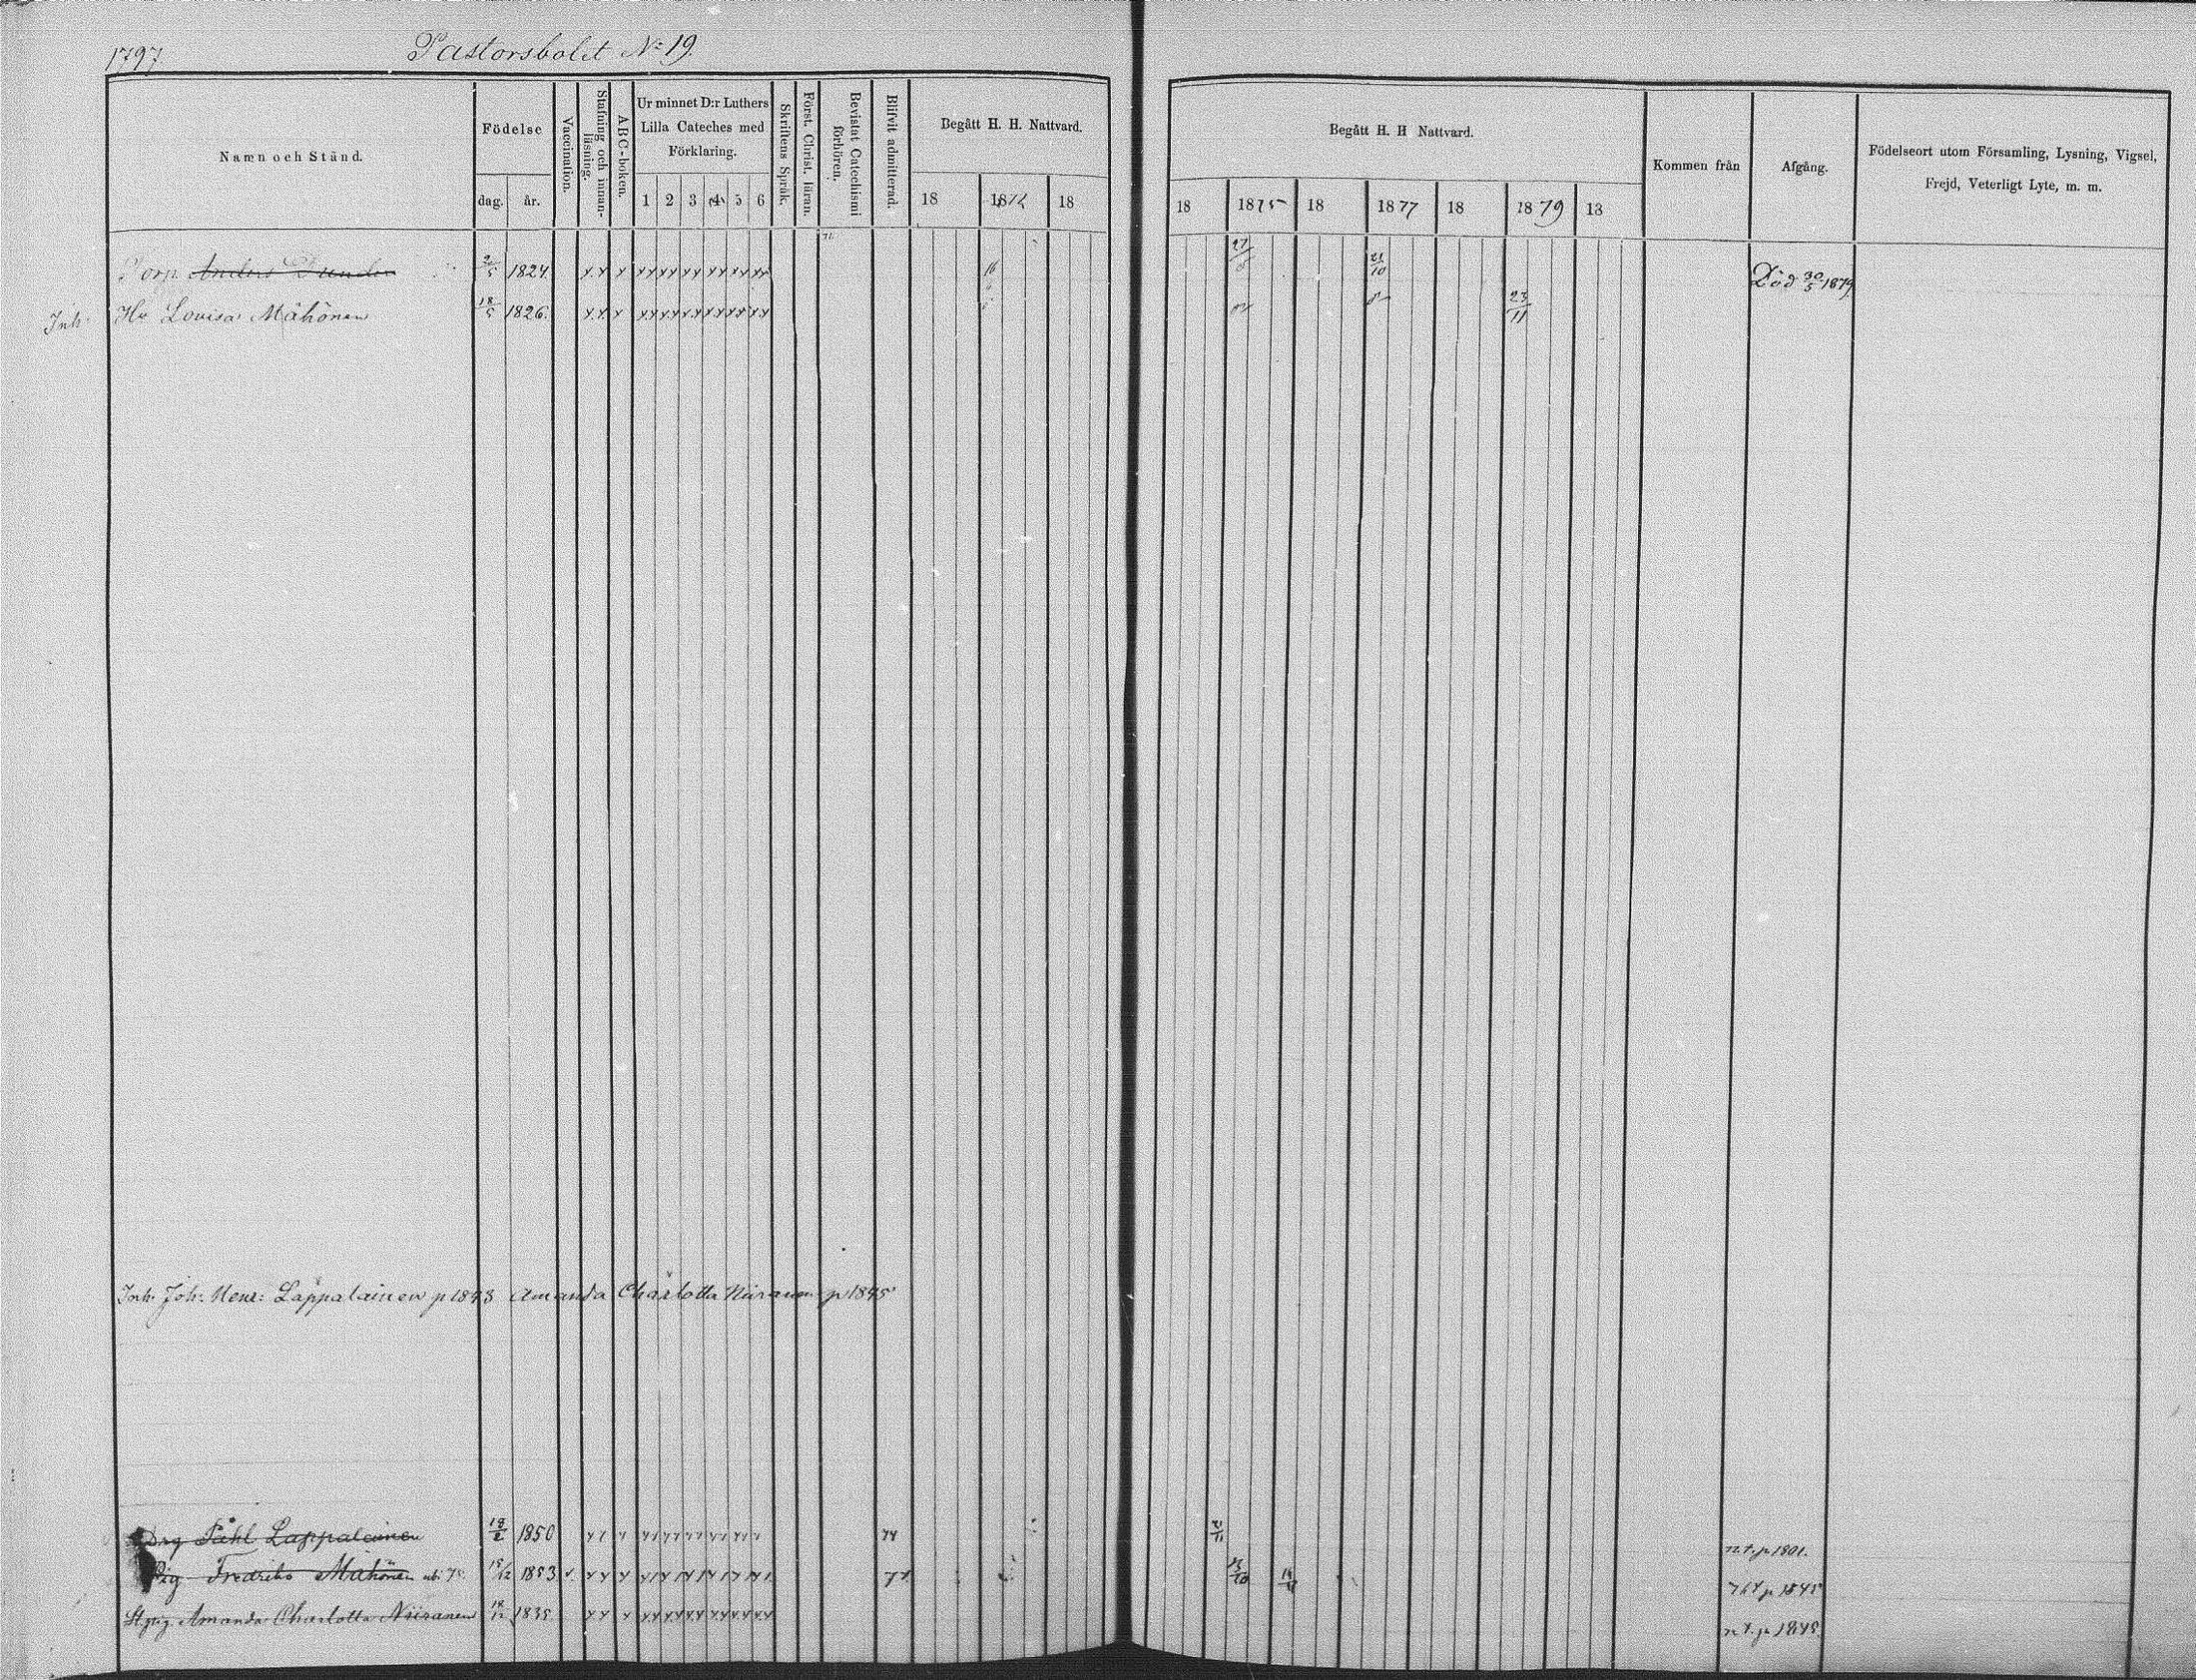 1797
Pastorsbolet No 19.
Namn och Stånd.
Födelse
dag.
år.
Vaccination.
Stafning och innan-
läsning.
ABC-boken.
Ur minnet D:r Luthers
Lilla Cateches med
Förklaring.
1 2 3 4 5 6
Skriftens Språk.
Först. Christ. läran.
Bevistat Catechismi
förhören.
Blifvit admitterad.
Begått H. H. Nattvard.
18 1874 18
Begått H. H Nattvard.
18 1875 18 1877 18 1879 18
Kommen från
Afgång.
Födelseort utom Församling, Lysning, Vigsel,
Frejd, Veterligt Lyte, m. m.
Torp. Anders 2/5 1824 x x x xx xx xx xx xx xx 16 27/8 21/10 Död 30/5 1879
Inh. Hu Lovisa Mähönen 18/5 1826. x x x xx xx xx xx xx xx 23/11
Inh. Joh. Henr: Lappalainen p 1843 Amanda Charlotta Niiranen p 1845
Drg Påhl Lappalainen 18/2 1850 74 n. t. p 1801.
Pig Fredrika Mähönen 15/12 1853 p 1845
St. pig. Amanda Charlotta Niiranen 1835 x x x xx xx xx xx xx xx n t. p 1845